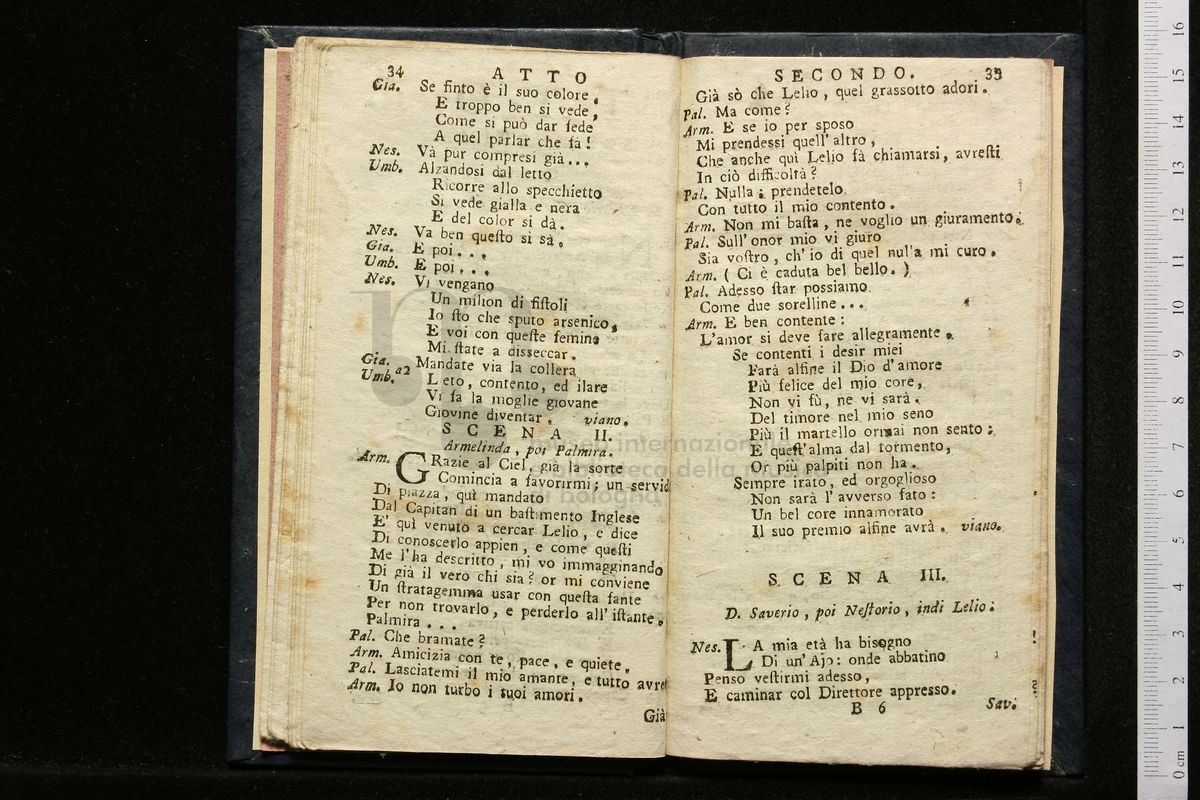 34 ATTO
Gia. Se finto è il suo colore,
E troppo ben si vede,
Come si può dar fede
A quel parlar che fà!
Nes. Và pur compresi già...
Umb. Alzandosi dal letto
Ricorre allo specchietto
Si vede gialla e nera
E del color si dà.
Nes. Va ben questo si sà.
Gia. E poi...
Umb. E poi...
Nes. Vi vengano
Un milion di fistoli
Io sto che sputo arsenico,
E voi con queste femine
Mi state a disseccar.
Gia. Umb. a2 Mandate via la collera
Leto, contento, ed ilare
Vi fa la moglie giovane
Giovine diventar. viano.
SCENA II.
Armelinda, poi Palmira.
Arm. GRazie al Ciel, già la sorte
Comincia a favorirmi; un servid
Di piazza, quì mandato
Dal Capitan di un bastimento Inglese
E' quì venuto a cercar Lelio, e dice
Di conoscerlo appien, e come questi
Me l'ha descritto, mi vo immagginando
Di già il vero chi sia? or mi conviene
Un stratagemma usar con questa fante
Per non trovarlo, e perderlo all' istante.
Palmira...
Pal. Che bramate?
Arm. Amicizia con te, pace, e quiete.
Pal. Lasciatemi il mio amante, e tutto avre
Arm. Io non turbo i tuoi amori.
Già
SECONDO. 35
Già sò che Lelio, quel grassotto adori.
Pal. Ma come?
Arm. E se io per sposo
Mi prendessi quell' altro,
Che anche quì Lelio fà chiamarsi, avresti
In ciò difficoltà?
Pal. Nulla: prendetelo
Con tutto il mio contento.
Arm. Non mi basta, ne voglio un giuramento.
Pal. Sull' onor mio vi giuro
Sia vostro, ch' io di quel nulla mi curo.
Arm. (Ci è caduta bel bello.)
Pal. Adesso star possiamo
Come due sorelline...
Arm. E ben contente:
L'amor si deve fare allegramente.
Se contenti i desir miei
Farà alfine il Dio d'amore
Più felice del mio core,
Non vi fù, ne vi sarà.
Del timore nel mio seno
Più il martello ormai non sento:
E quest' alma dal tormento,
Or più palpiti non ha.
Sempre irato, ed orgoglioso
Non sarà l' avverso fato:
Un bel core innamorato
Il suo premio alfine avrà. viano.
SCENA III.
D. Saverio, poi Nestorio, indi Lelio.
Nes. LA mia età ha bisogno
Di un' Ajo: onde abbatino
Penso vestirmi adesso,
E caminar col Direttore appresso.
B 6 Sav.
museo internazionale
biblioteca della musica
di bologna
0 cm 1 2 3 4 5 6 7 8 9 10 11 12 13 14 15 16